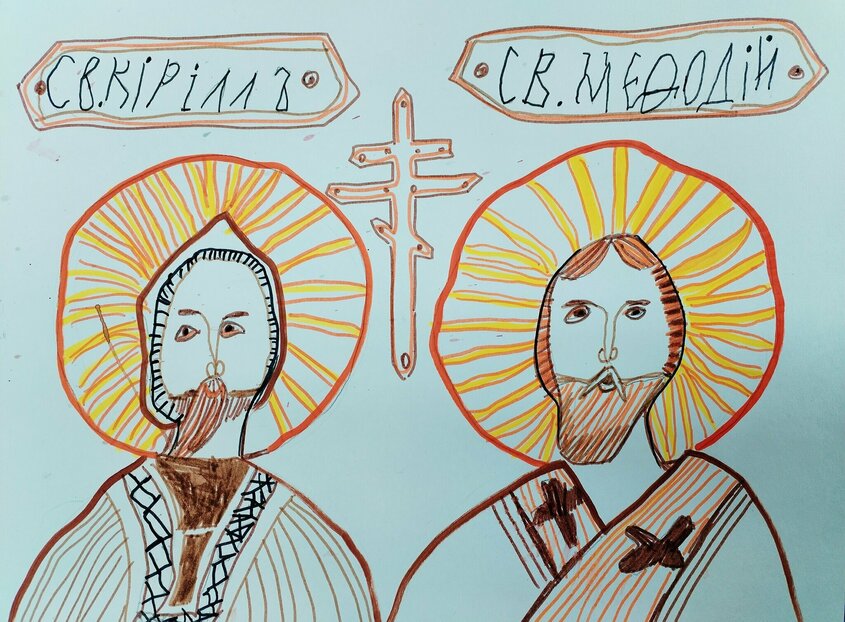 СВ.КІРІЛЛЪ
СВ.МЕѲОДІЙ